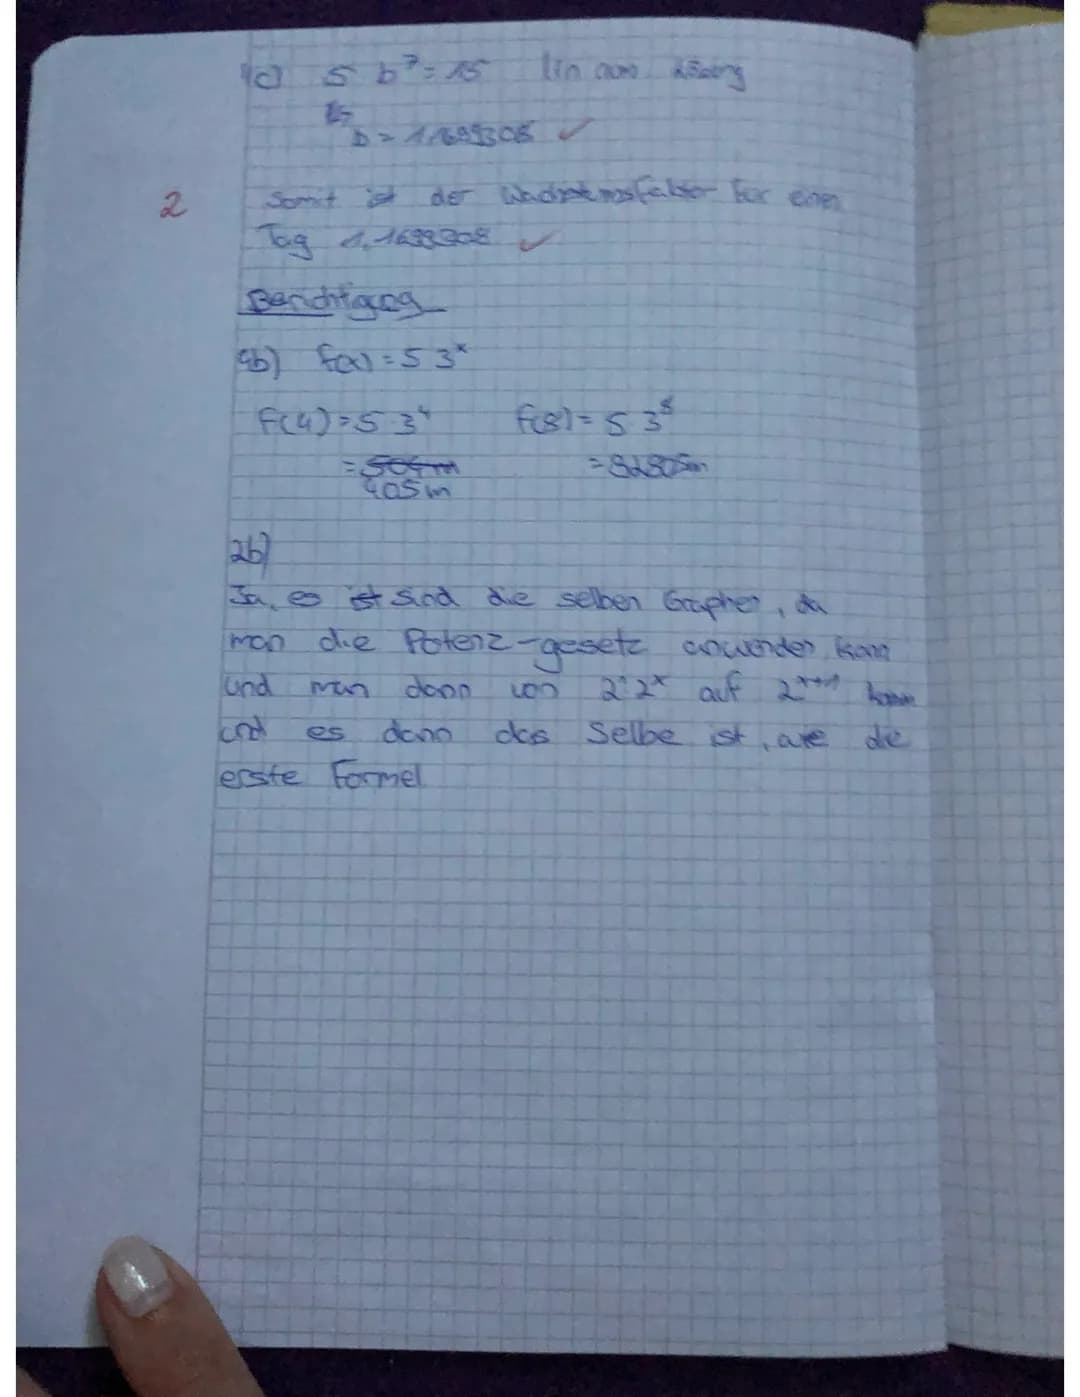 4c) 5 b⁷ = 15 lin num
b = 1,1699308 ✓
2
Somit ist der Wachstumsfaktor für einen
Tag 1,1699308 ✓
Berichtigung
4b) f(x) = 5 3ˣ
f(4) = 5·3⁴ f(8) = 5 3⁸
= = 32805m
405m
2b)
Ja, es ist sind die selben Graphen, da
man die Potenz-gesetz anwenden kann
und man dann von 2¹2ˣ auf 2ˣ⁺¹ komm
und es dann das Selbe ist, wie die
erste Formel